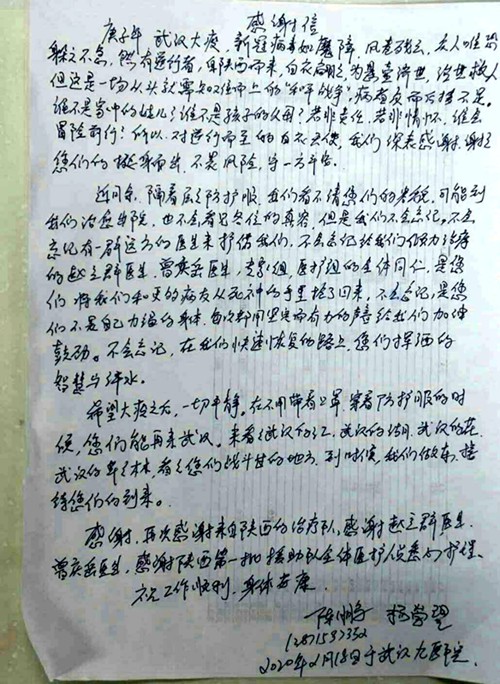 感谢信
庚子年 武汉大疫，新冠病毒如魔障，风卷残云，众人唯恐
躲之不急，然有逆行者，自陕西而来，白衣 为 济世，治世救人
但这是一切从头就 的“ 战争”，病者反而 不是。
谁不是家中的娃儿？谁不是孩子的父母？若非责任，若非情怀，谁会
冒险前行！所以，对逆行而至的白衣天使，我们深表感谢，谢谢
您们的挺身而出，不畏风险，守一方平安。
近日来，隔着层层防护服，我们看不清您们的容貌，可能到
我们治愈出院，也不会看见各位的真容，但是我们不会忘记。不会
忘记有一群远方的医生来护佑我们，不会忘记给我们倾力治疗
的赵立群医生，曾庆岳医生， 组，医护组的全体同仁，是您
们 将我们和更多的病友从死神的手里抢了回来，不会忘记，是您
们不是自己力强的身体，每次都用坚定而有力的声音给我们加油
鼓劲。不会忘记，在我们快速恢复的路上，您们挥洒的
智慧与汗水。
希望大疫之后，一切平静。在不用带着口罩，穿着防护服的时
候，您们能再来武汉。来看看武汉的江，武汉的湖，武汉的花，
武汉的草木，看看您们战斗过的地方，到时候，我们做东，接
待您们的到来。
感谢，再次感谢来自陕西的治疗队，感谢赵立群医生，
曾庆岳医生，感谢陕西第一批援助队全体医护人员悉心护理，
祝工作顺利，身体安康
陈鹏 杨
2020年2月18日于武汉九医院